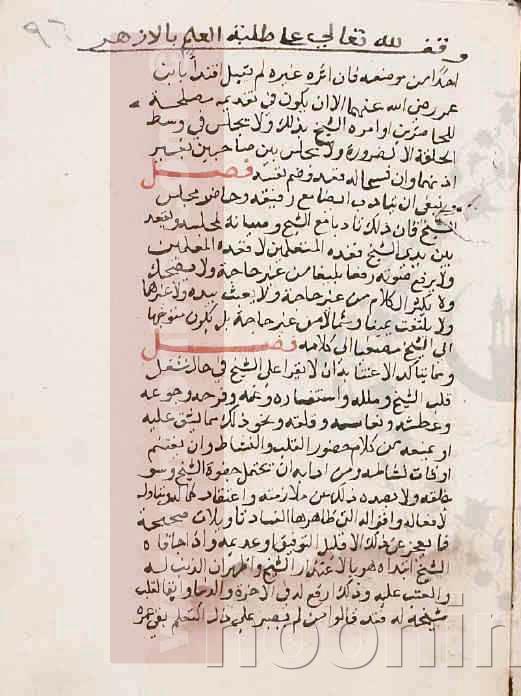 ٩٦
وقف لله تعالى على طلبة العلم بالازهر
احدا من موضعه فان اثره غيره لم يقبل اقتدا بابن
عمر رضي الله عنهما الا ان يكون في تقديمه مصلحة
للحاضرين او امره الشيخ بذلك ولا يجلس في وسط
الحلقة الا لضرورة ولا يجلس بين صاحبين بغير
اذنهما وان فسحا له قعد وضم نفسه فصل
وينبغي ان يتادب ايضا مع رفيقه وحاضري مجلس
الشيخ فان ذلك تادبا مع الشيخ وصيانة لمجلسه ويقعد
بين يدي الشيخ قعدة المتعلمين لا قعدة المعلمين
ولا يرفع صوته رفعا بليغا من غير حاجة ولا يضحك
ولا يكثر الكلام من غير حاجة ولا يعبث بيده ولا غيرها
ولا يلتفت يمينا وشمالا من غير حاجة بل يكون متوجها
الى الشيخ مصغيا الى كلامه فصل
ومما يتاكد الاعتنا به ان لا يقرا على الشيخ في حال شغل
قلب الشيخ وملله واستفزازه وغمه وفرحه وجوعه
وعطشه ونعاسه وقلقه ونحو ذلك مما يشق عليه
او يمنعه من كلام حضور القلب والنشاط وان يغتنم
اوقات نشاطه ومن ادابه ان يحتمل جفوة الشيخ وسو
خلقه ولا يصده ذلك عن ملازمته واعتقاد كماله ويتاول
لافعاله واقواله التي ظاهرها الفساد تاويلات صحيحة
فما يعجز عن ذلك الا قليل التوفيق او عديمه واذا جفاه
الشيخ ابتدا هو بالاعتذار الى الشيخ واظهر ان الذنب له
والعتب عليه وذلك ارفع له في الاخرة والدنيا وابقا لقلب
شيخه له فقد قالوا من لم يصبر على ذل التعلم بقي عمره
noorin